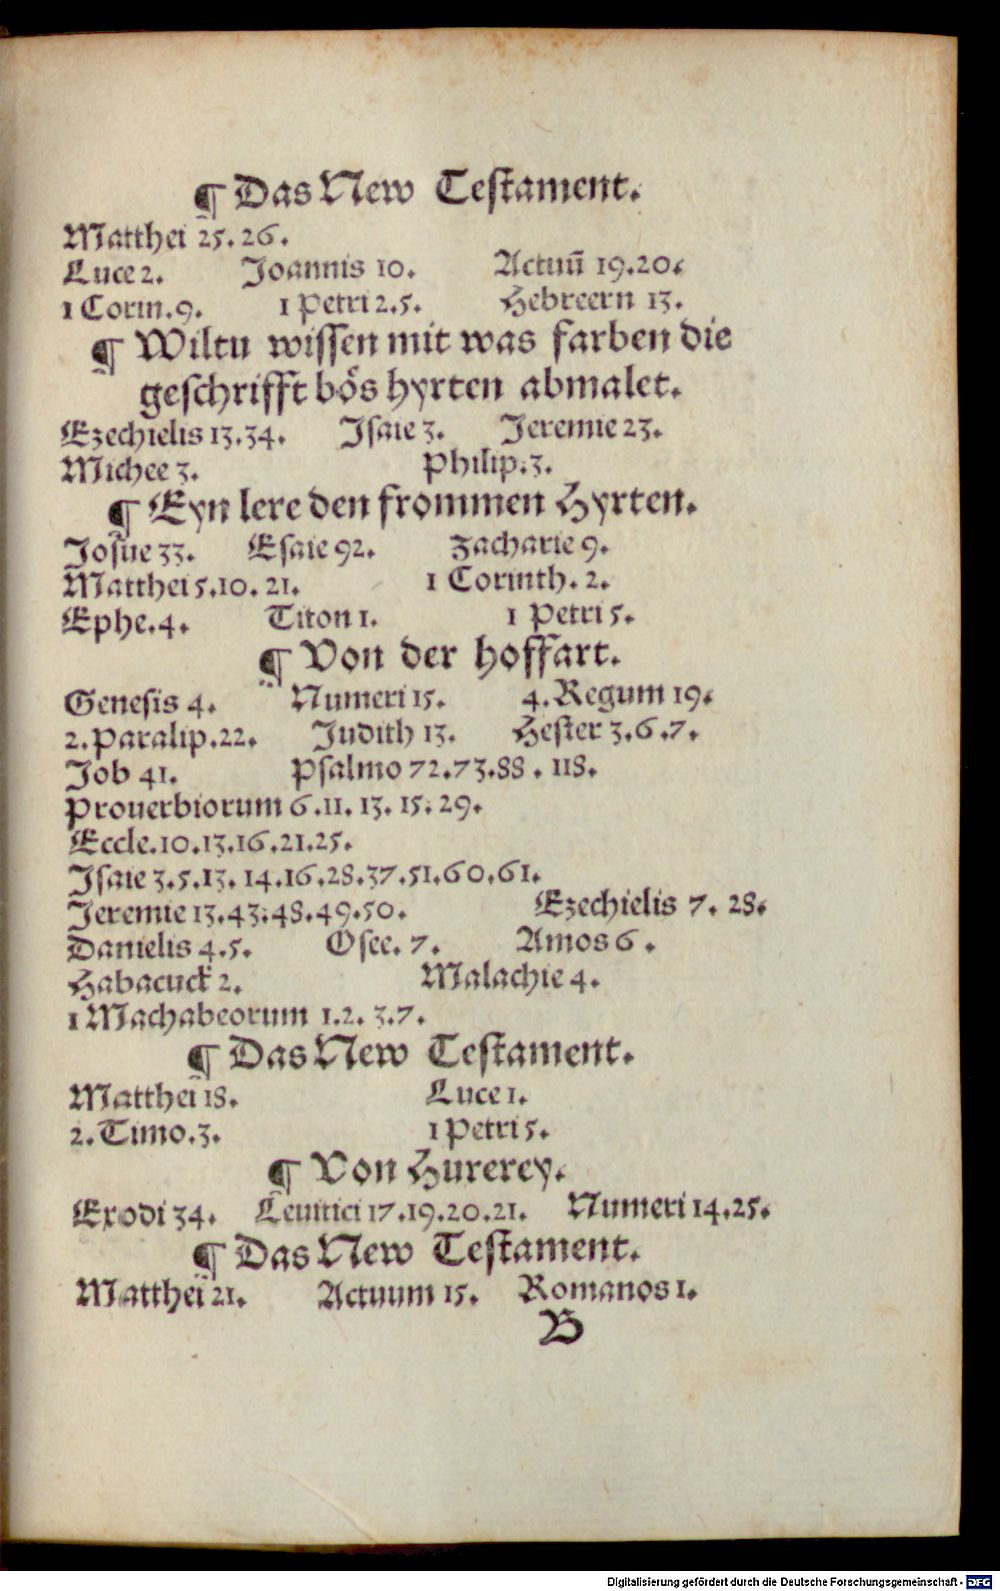 ¶ Das New Testament.
Matthei 25. 26.
Luce 2. Joannis 10. Actuū 19.20.
1 Corin. 9. 1 Petri 2.5. Hebreern 13.
¶ Wiltu wissen mit was farben die
geschrifft bo̊s hyrten abmalet.
Ezechielis 13.34. Isaie 3. Jeremie 23.
Michee 3. Philip. 3.
¶ Eyn lere den frommen Hyrten.
Josue 33. Esaie 92. Zacharie 9.
Matthei 5.10. 21. 1 Corinth. 2.
Ephe. 4. Titon 1. 1 Petri 5.
¶ Von der hoffart.
Genesis 4. Numeri 15. 4. Regum 19.
2. Paralip. 22. Judith 13. Hester 3.6.7.
Job 41. Psalmo 72.73.88. 118.
Prouerbiorum 6.11. 13. 15. 29.
Eccle. 10.13.16.21.25.
Isaie 3.5.13. 14.16.28.37.51.60.61.
Jeremie 13.43.48.49.50. Ezechielis 7. 28.
Danielis 4.5. Osee. 7. Amos 6.
Habacuck 2. Malachie 4.
1 Machabeorum 1.2. 3.7.
¶ Das New Testament.
Matthei 18. Luce 1.
2. Timo. 3. 1 Petri 5.
¶ Von Hurerey.
Exodi 34. Leuitici 17.19.20.21. Numeri 14.25.
¶ Das New Testament.
Matthei 21. Actuum 15. Romanos 1.
B
Digitalisierung gefördert durch die Deutsche Forschungsgemeinschaft - DFG